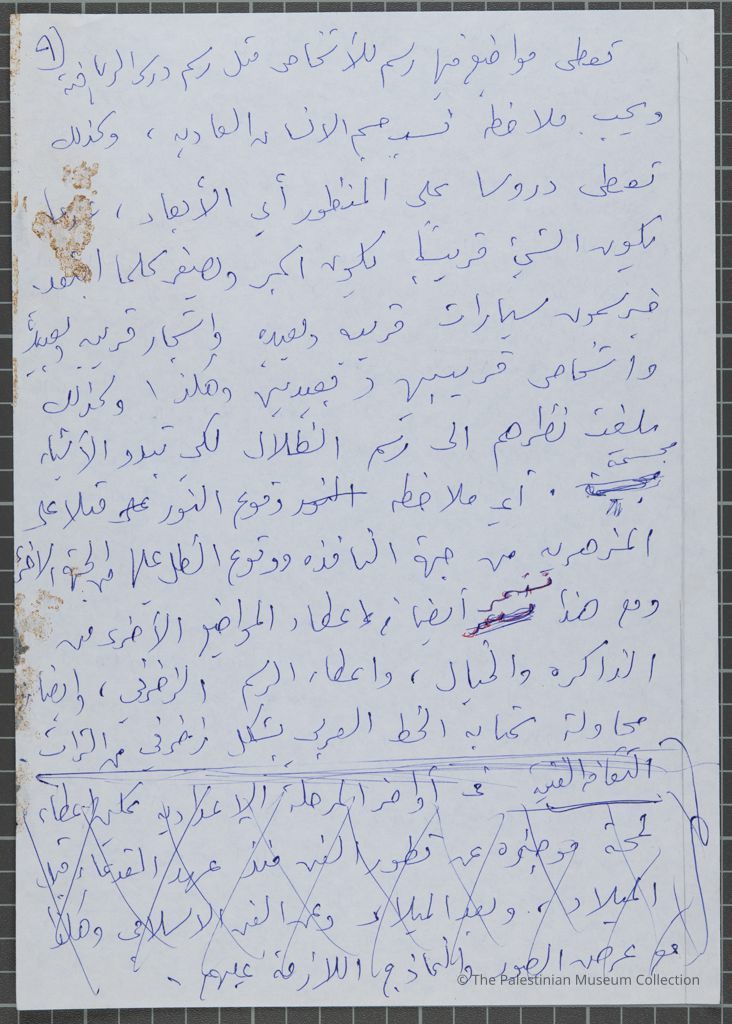 ٩)
تعطى مواضيع فيها رسم للأشخاص مثل رسم درس الرياضة
ويجب ملاحظة نسب جسم الانسان العادية ، وكذلك
تعطى دروسا على المنظور أي الأبعاد ،
يكون الشيء قريبا يكون اكبر ويصغر كلما ابتعد
فيرسمون سيارات قريبه وبعيده واشجار قريبه وبعيدة
وأشخاص قريبين وبعيدين وهكذا وكذلك
يلفت نظرهم الى رسم الظلال لكي تبدو الأشياء
مجسمة . أي ملاحظه وقوع النور مثلا على
المزهرية من جهة النافذه ووقوع الظل عليها من الجهة الاخرى
ومع هذا نستمر أيضا في إعطاء المواضيع الأخرى من
الذاكره والخيال ، واعطاء الرسم الزخرفي ، وايضا
محاولة كتابه الخط العربي بشكل زخرفي من التراث .
الثقافة الفنية في أواخر المرحلة الإعدادية يمكن إعطاء
لمحة موجزه عن تطور الفن منذ عهد القدماء قبل
الميلاد ، وبعد الميلاد وعن الفن الاسلامي وهكذا
مع عرض الصور والنماذج اللازمة عليهم .
© The Palestinian Museum Collection